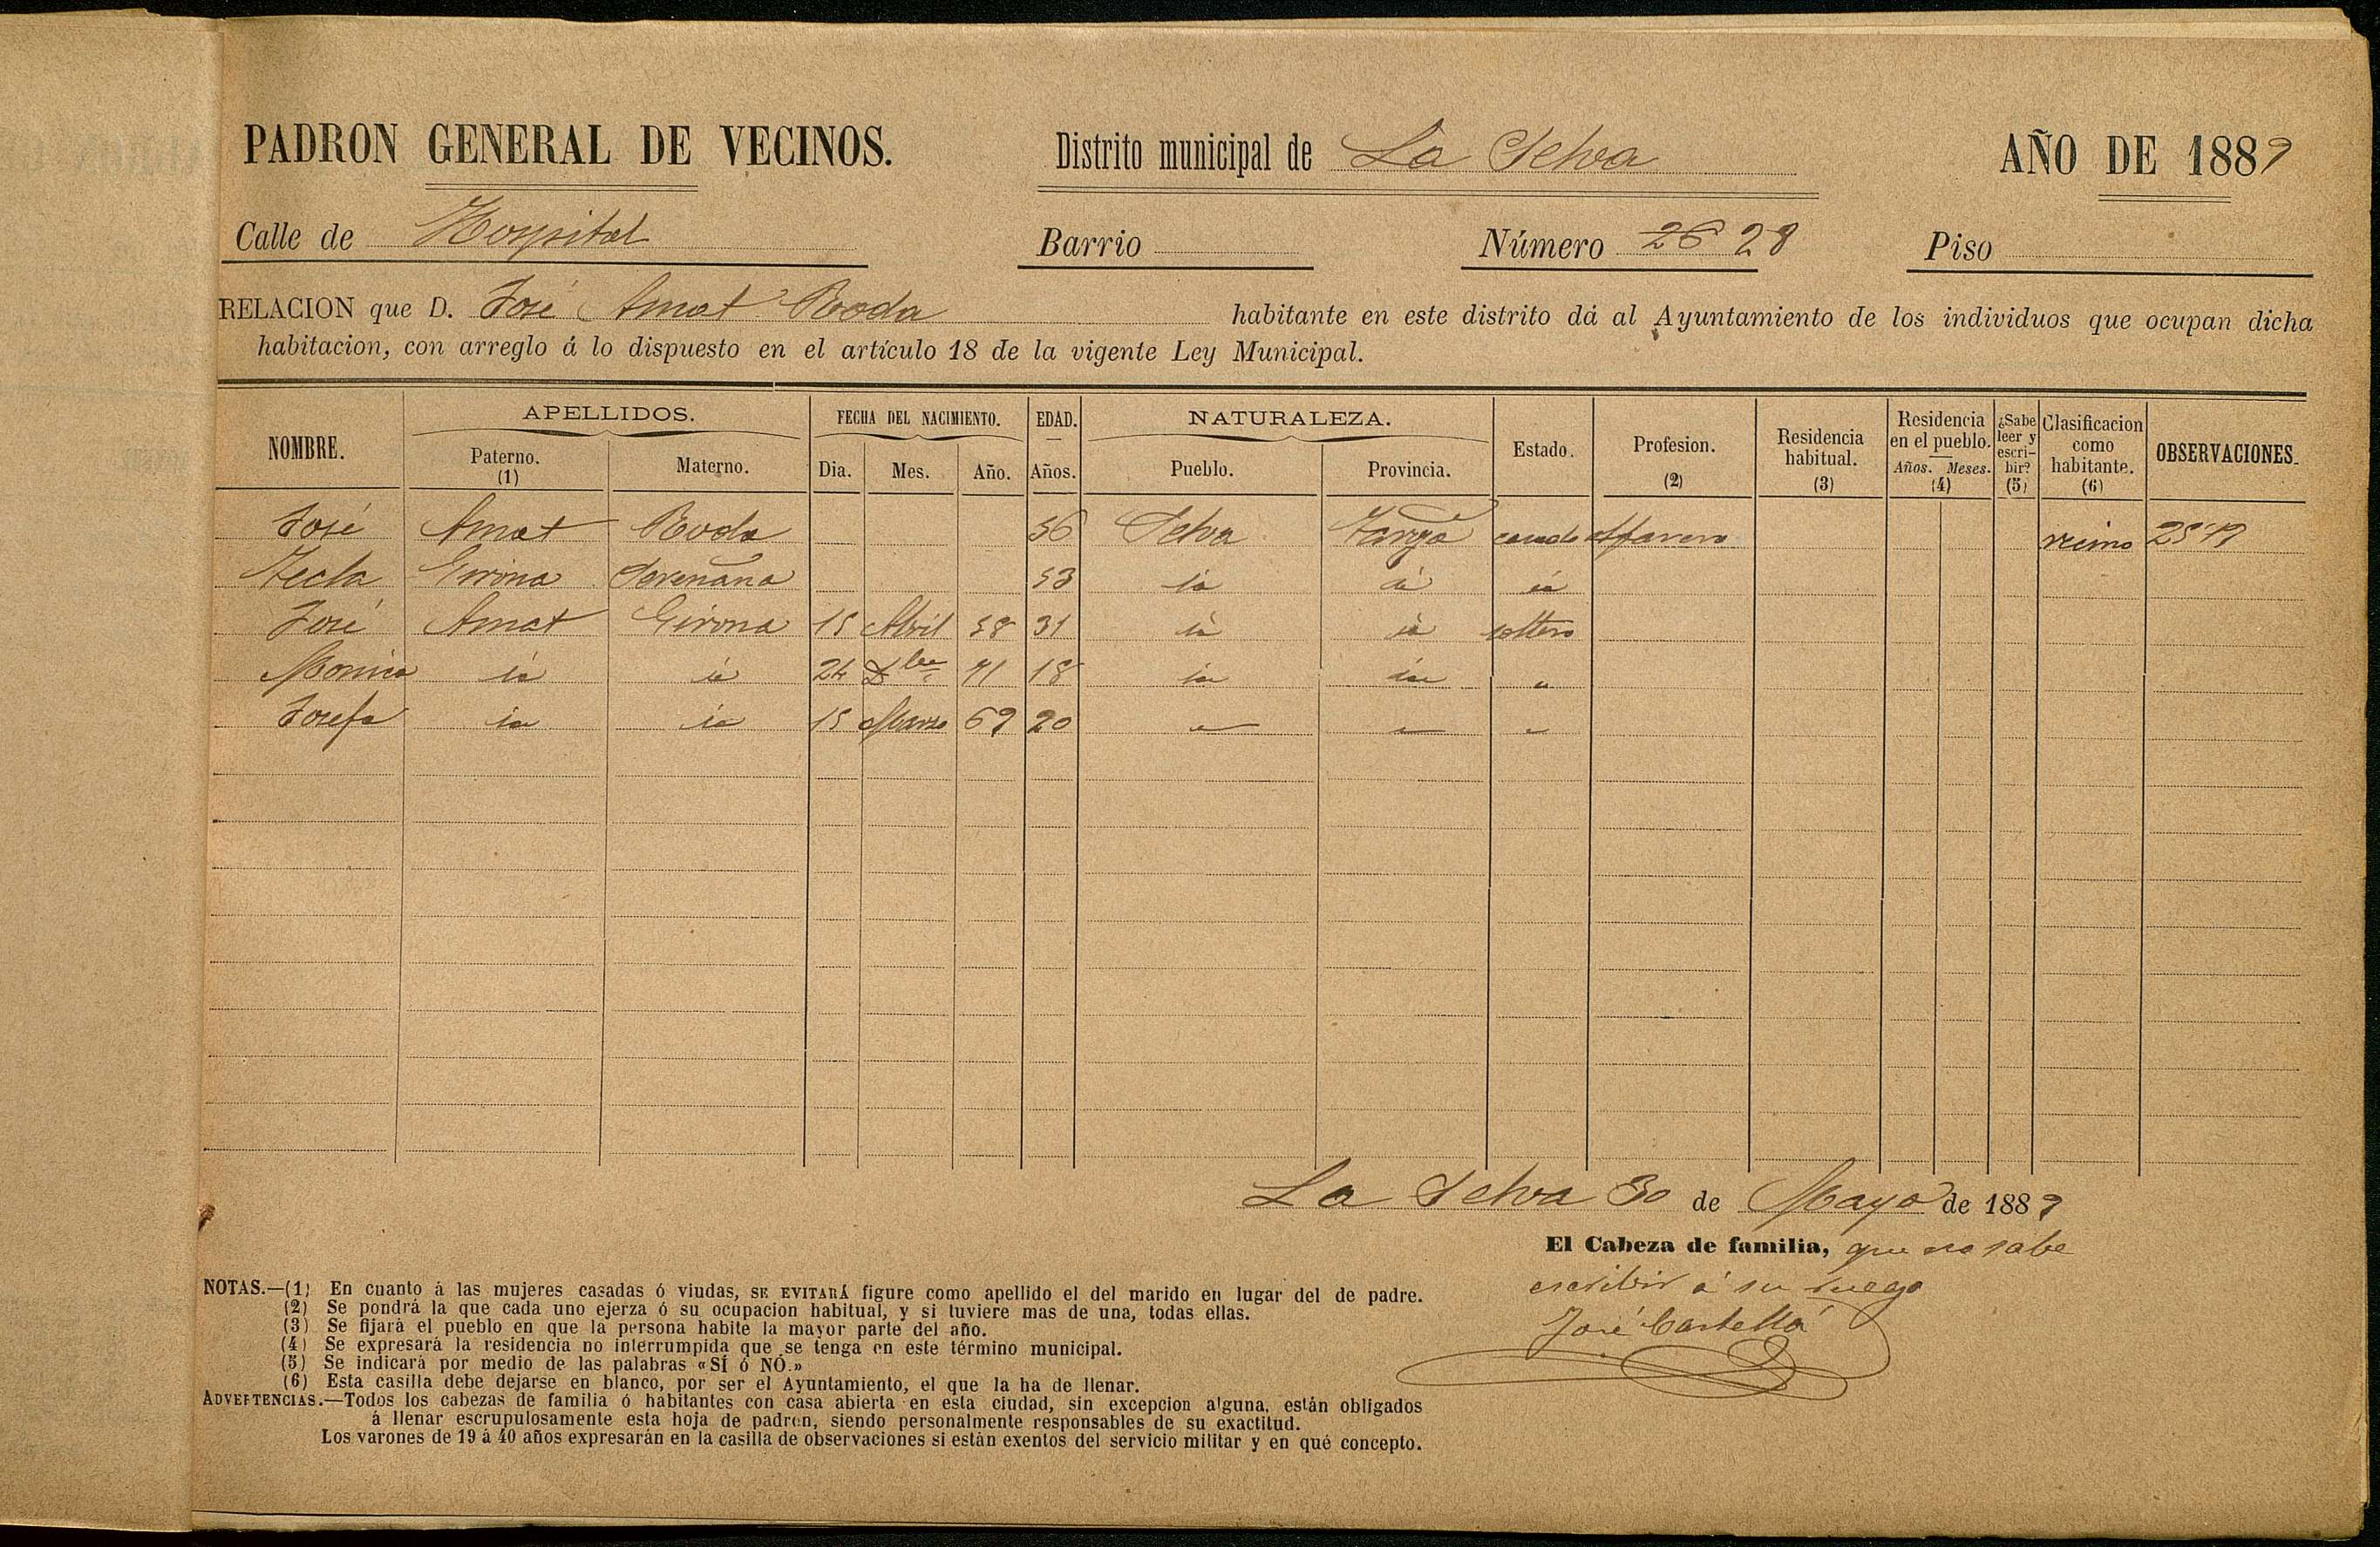 PADRON GENERAL DE VECINOS. Distrito municipal de La Selva AÑO DE 1889
Calle de Hospital Barrio Número 26 28 Piso
RELACION que D. José Amat Roda habitante en este distrito dá al Ayuntamiento de los individuos que ocupan dicha
habitacion, con arreglo á lo dispuesto en el artículo 18 de la vigente Ley Municipal.
NOMBRE. APELLIDOS. FECHA DEL NACIMIENTO. EDAD. NATURALEZA. Estado. Profesion. (2) Residencia habitual. (3) Residencia en el pueblo. ¿Sabe leer y escribir? (5) Clasificacion como habitante. (6) OBSERVACIONES.
Paterno. (1) Materno. Dia. Mes. Año. Años. Pueblo. Provincia. Años. Meses. (4)
José Amat Roda 56 Selva Tarrga casado Alfarero vecino
Tecla Girona 53 id id id
José Amat Girona 15 Abril 58 31 id id soltero
Monica id id 24 Dbre 71 18 id id "
Josefa id id 15 Marzo 69 20 " " "
La Selva 30 de Mayo de 1889
El Cabeza de familia, que no sabe
escribir á su ruego
José Castellá
NOTAS.—(1) En cuanto á las mujeres casadas ó viudas, SE EVITARÁ figure como apellido el del marido en lugar del de padre.
(2) Se pondrá la que cada uno ejerza ó su ocupacion habitual, y si tuviere mas de una, todas ellas.
(3) Se fijará el pueblo en que la persona habite la mayor parte del año.
(4) Se expresará la residencia no interrumpida que se tenga en este término municipal.
(5) Se indicará por medio de las palabras «SÍ ó NÓ.»
(6) Esta casilla debe dejarse en blanco, por ser el Ayuntamiento, el que la ha de llenar.
ADVERTENCIAS.—Todos los cabezas de familia ó habitantes con casa abierta en esta ciudad, sin excepcion alguna, están obligados
á llenar escrupulosamente esta hoja de padron, siendo personalmente responsables de su exactitud.
Los varones de 19 á 40 años expresarán en la casilla de observaciones si están exentos del servicio militar y en qué concepto.